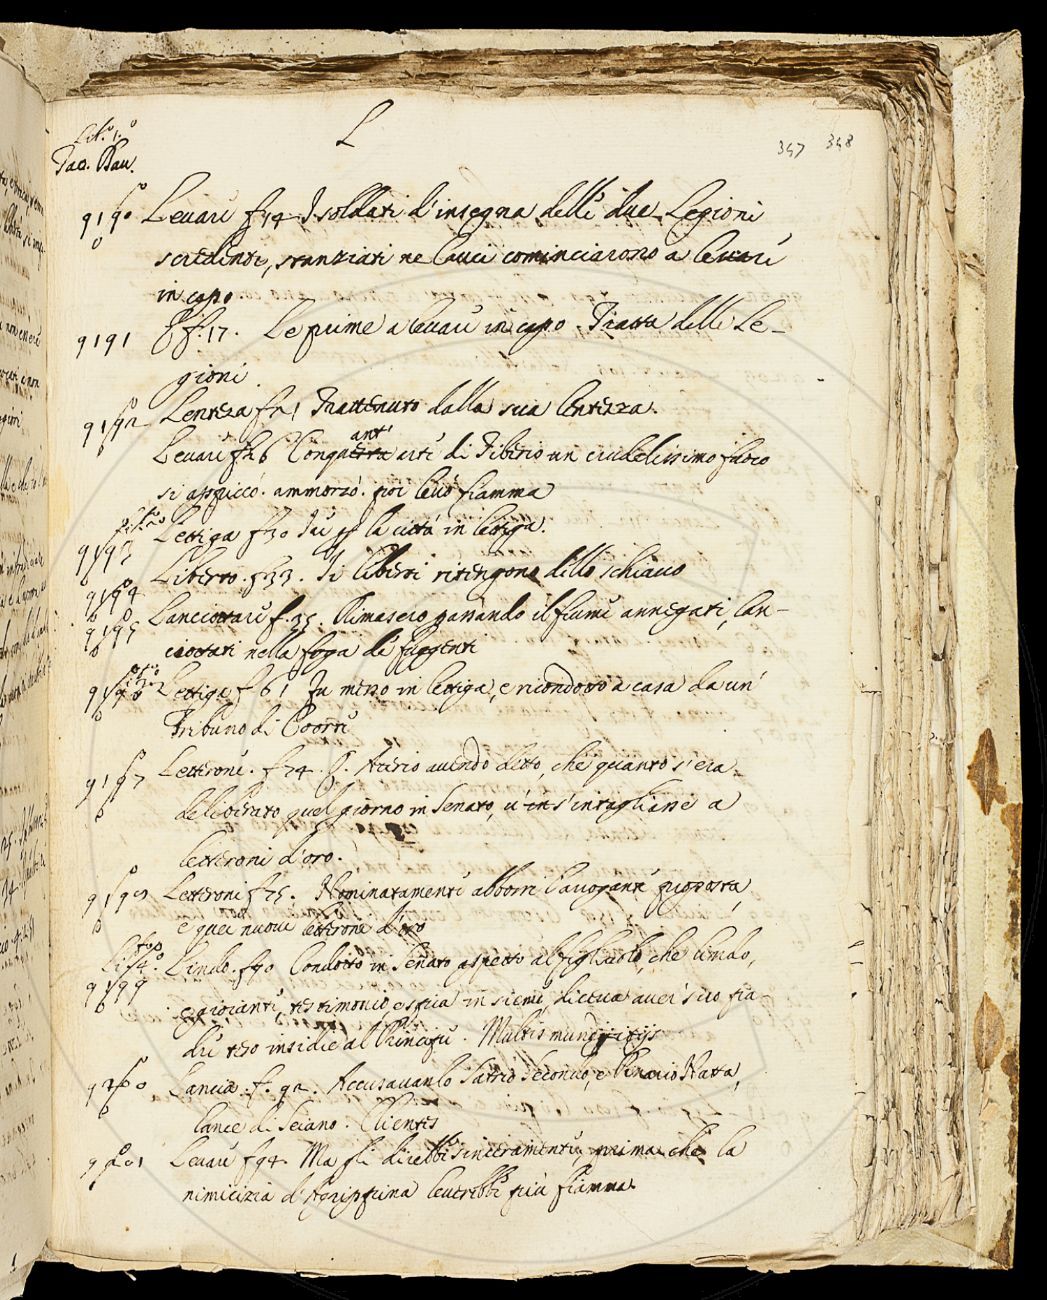 L
347 348
Lib.º 1.º
Tac. Dav.
9190 Levare f 14 I soldati d'insegna delle due Legioni
scredenti, stanziati ne Cauci cominciarono a levare
in capo
9191 f.17. Le prime a levare in capo. Tratta delle Le-
gioni.
9192 Lentezza f 21 Trattenuto dalla sua lentezza.
Levare f 26 anti di Tiberio un crudelissimo fuoco
si appiccò. ammorzò. poi levò fiamma
9193 Lettiga f 30 la città in lettiga.
9194 Liberto. f 33. Si liberi ritengono dello schiavo
9195 Lanciottare f. 35. Rimasero passando il fiume annegati, lan-
ciottati nella foga de fuggenti
9196 Lettiga f 61 Fu messo in lettiga, e ricondotto a casa da un'
Tribuno di Coorte
9197 Letteroni. f 74. Aterio avendo detto, che quanto s'era
deliberato quel giorno in Senato, s'intagliasse a
letteroni d'oro.
9198 Letteroni f 75. Nominatamente abborrì l'arrogante proposta,
e quei nuovi letteroni d'oro
Lib. 4.º
9199 Lindo. f 90 Condotto in Senato aspetto al figliuolo, che lindo,
e gioiante, testimonio, e spia insieme, diceva aver suo pa-
dre teso insidie al Principe. Multis munditijs
9200 Lancia. f. 92. Accusavanlo Satrio Secondo, e Pinario Natta,
lance di Seiano. Clientes
9201 Levare f 94. Ma gli direbbe sinceramente, prima che la
nimicizia d'Agrippina leverebbe più fiamma.